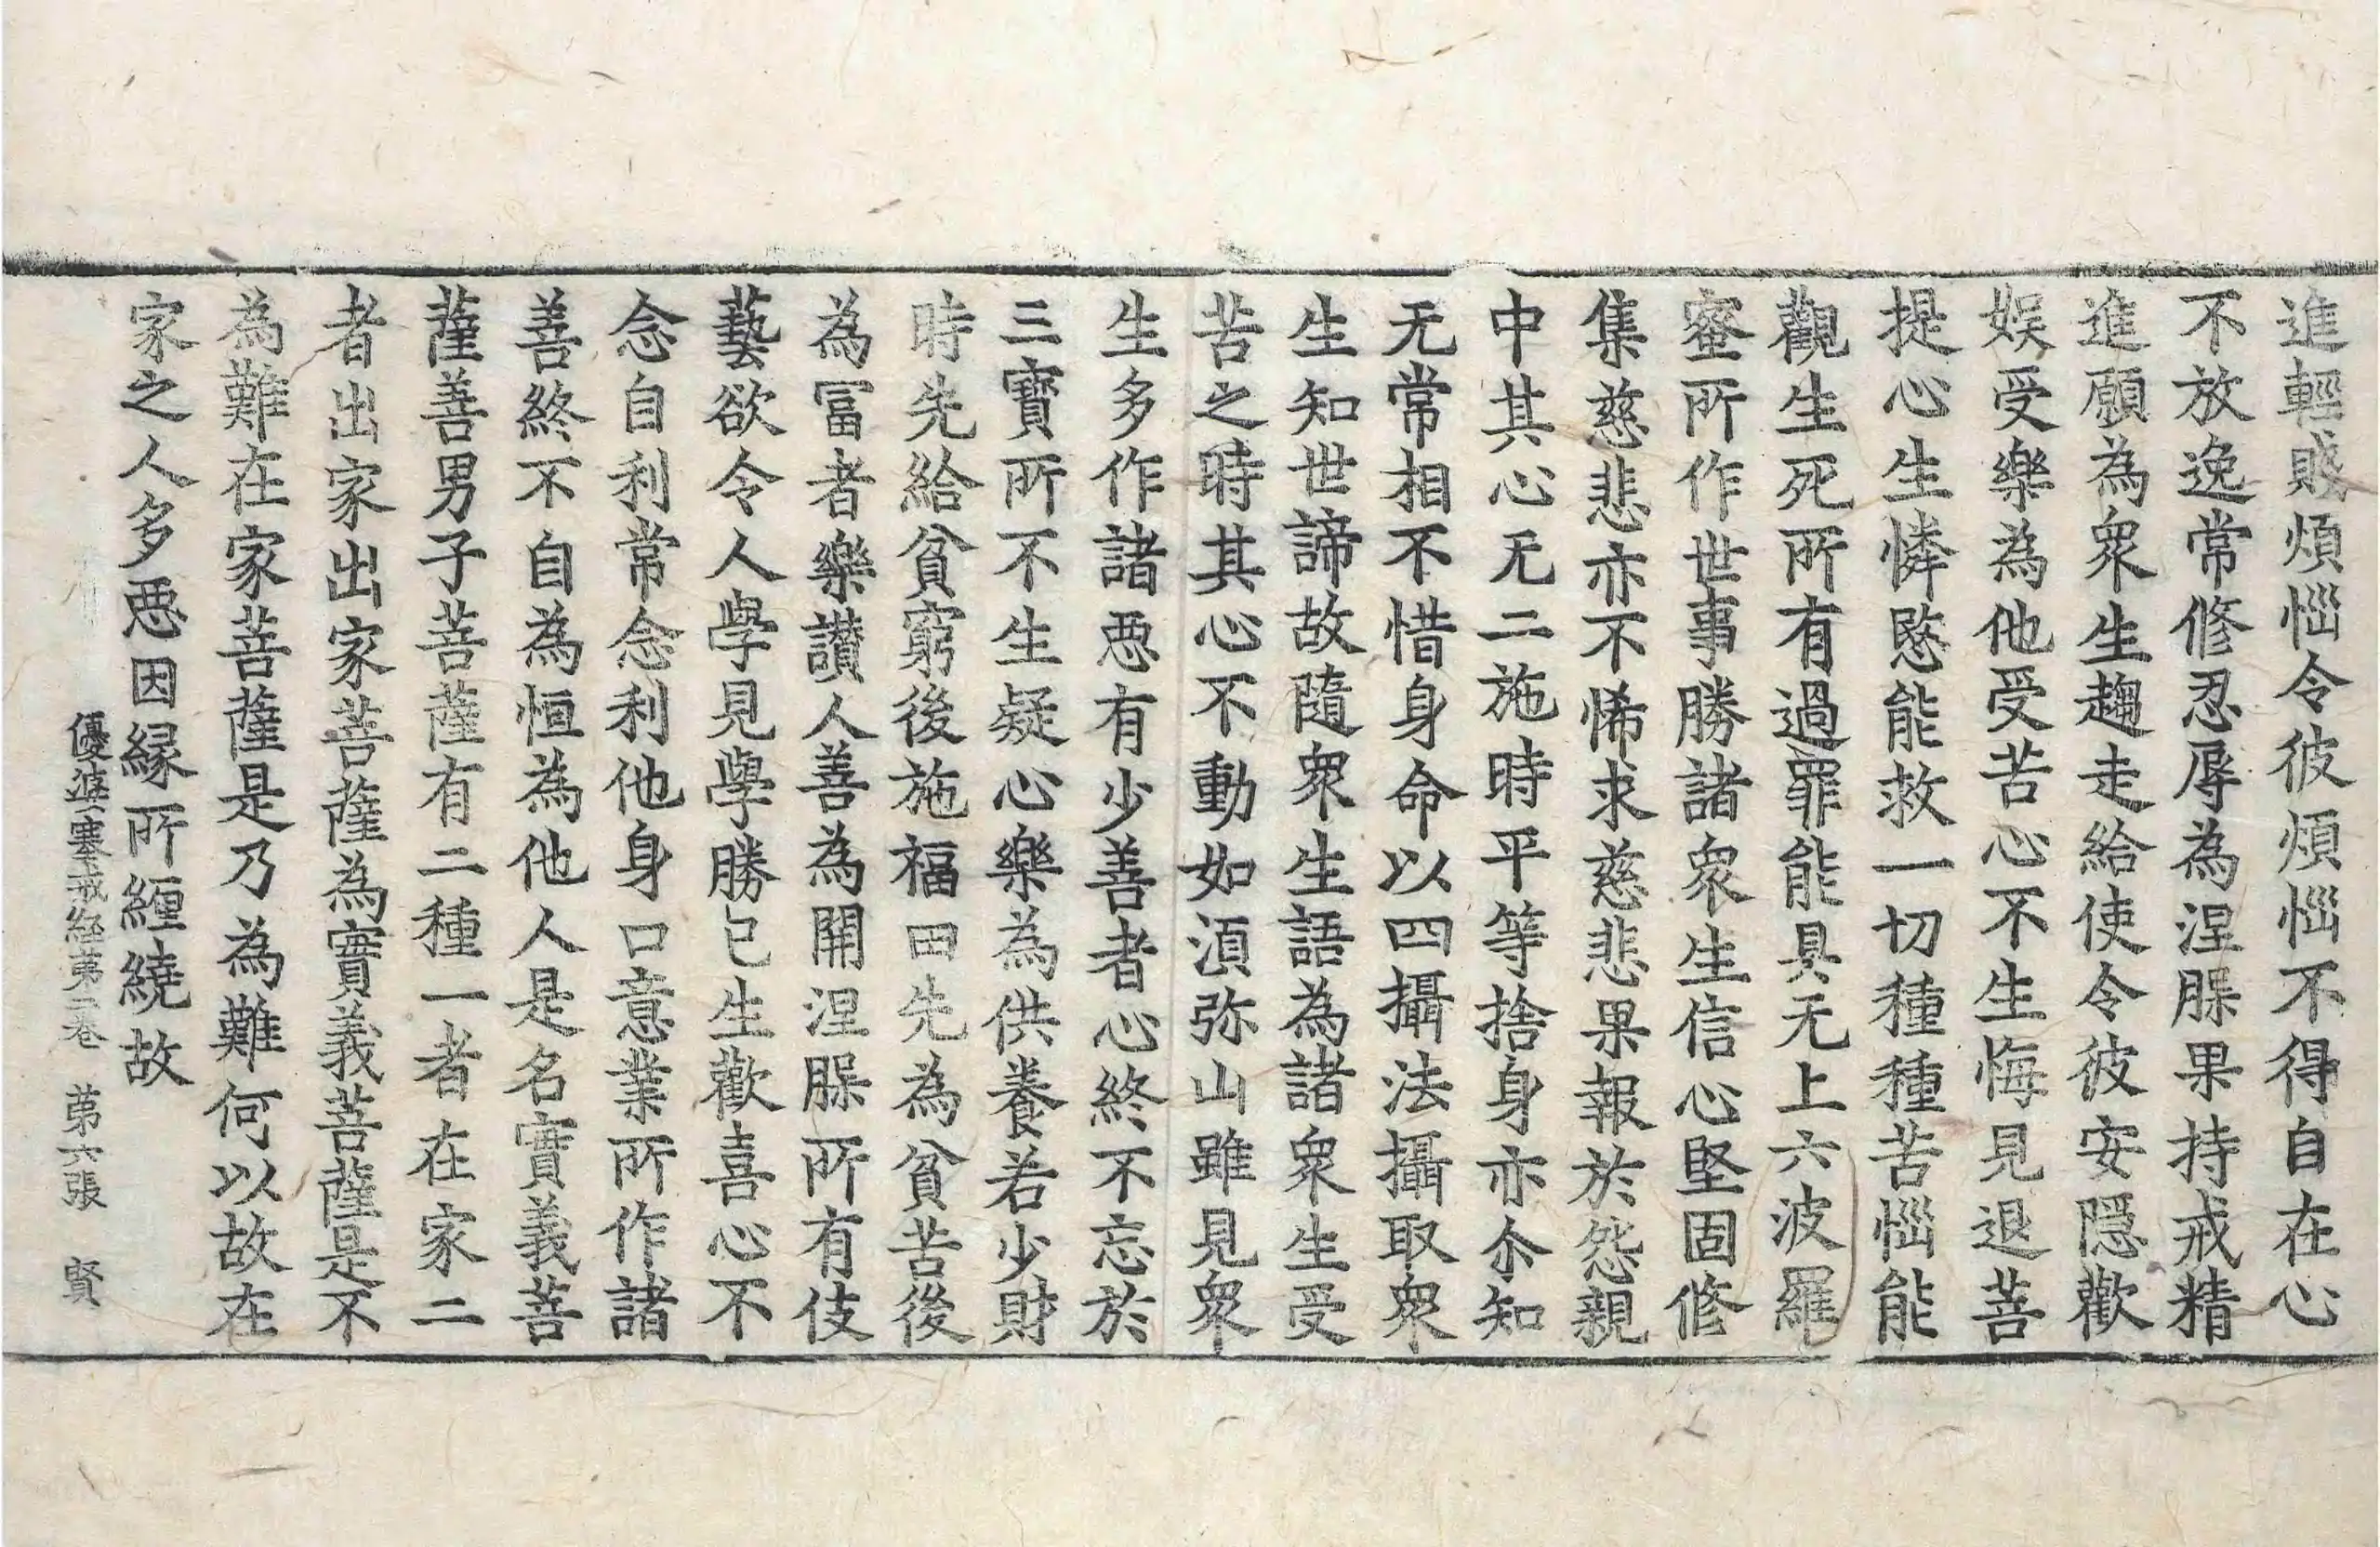 進輕賤煩惱令彼煩惱不得自在心
不放逸常修忍辱為涅槃果持戒精
進願為衆生趨走給使令彼安隱歡
娛受樂為他受苦心不生悔見退菩
提心生憐愍能救一切種種苦惱能
觀生死所有過罪能具无上六波羅
蜜所作世事勝諸衆生信心堅固修
集慈悲亦不悕求慈悲果報於怨親
中其心无二施時平等捨身亦尒知
无常相不惜身命以四攝法攝取衆
生知世諦故隨衆生語為諸衆生受
苦之時其心不動如湏弥山雖見衆
生多作諸惡有少善者心終不忘於
三寶所不生疑心樂為供養若少財
時先給貧窮後施福田先為貧苦後
為冨者樂讃人善為開涅槃所有伎
藝欲令人學見學勝已生歡喜心不
念自利常念利他身口意業所作諸
善終不自為恒為他人是名實義菩
薩善男子菩薩有二種一者在家二
者出家出家菩薩為實義菩薩是不
為難在家菩薩是乃為難何以故在
家之人多惡因緣所纏繞故
優婆塞戒經苐二卷 苐六張 賢